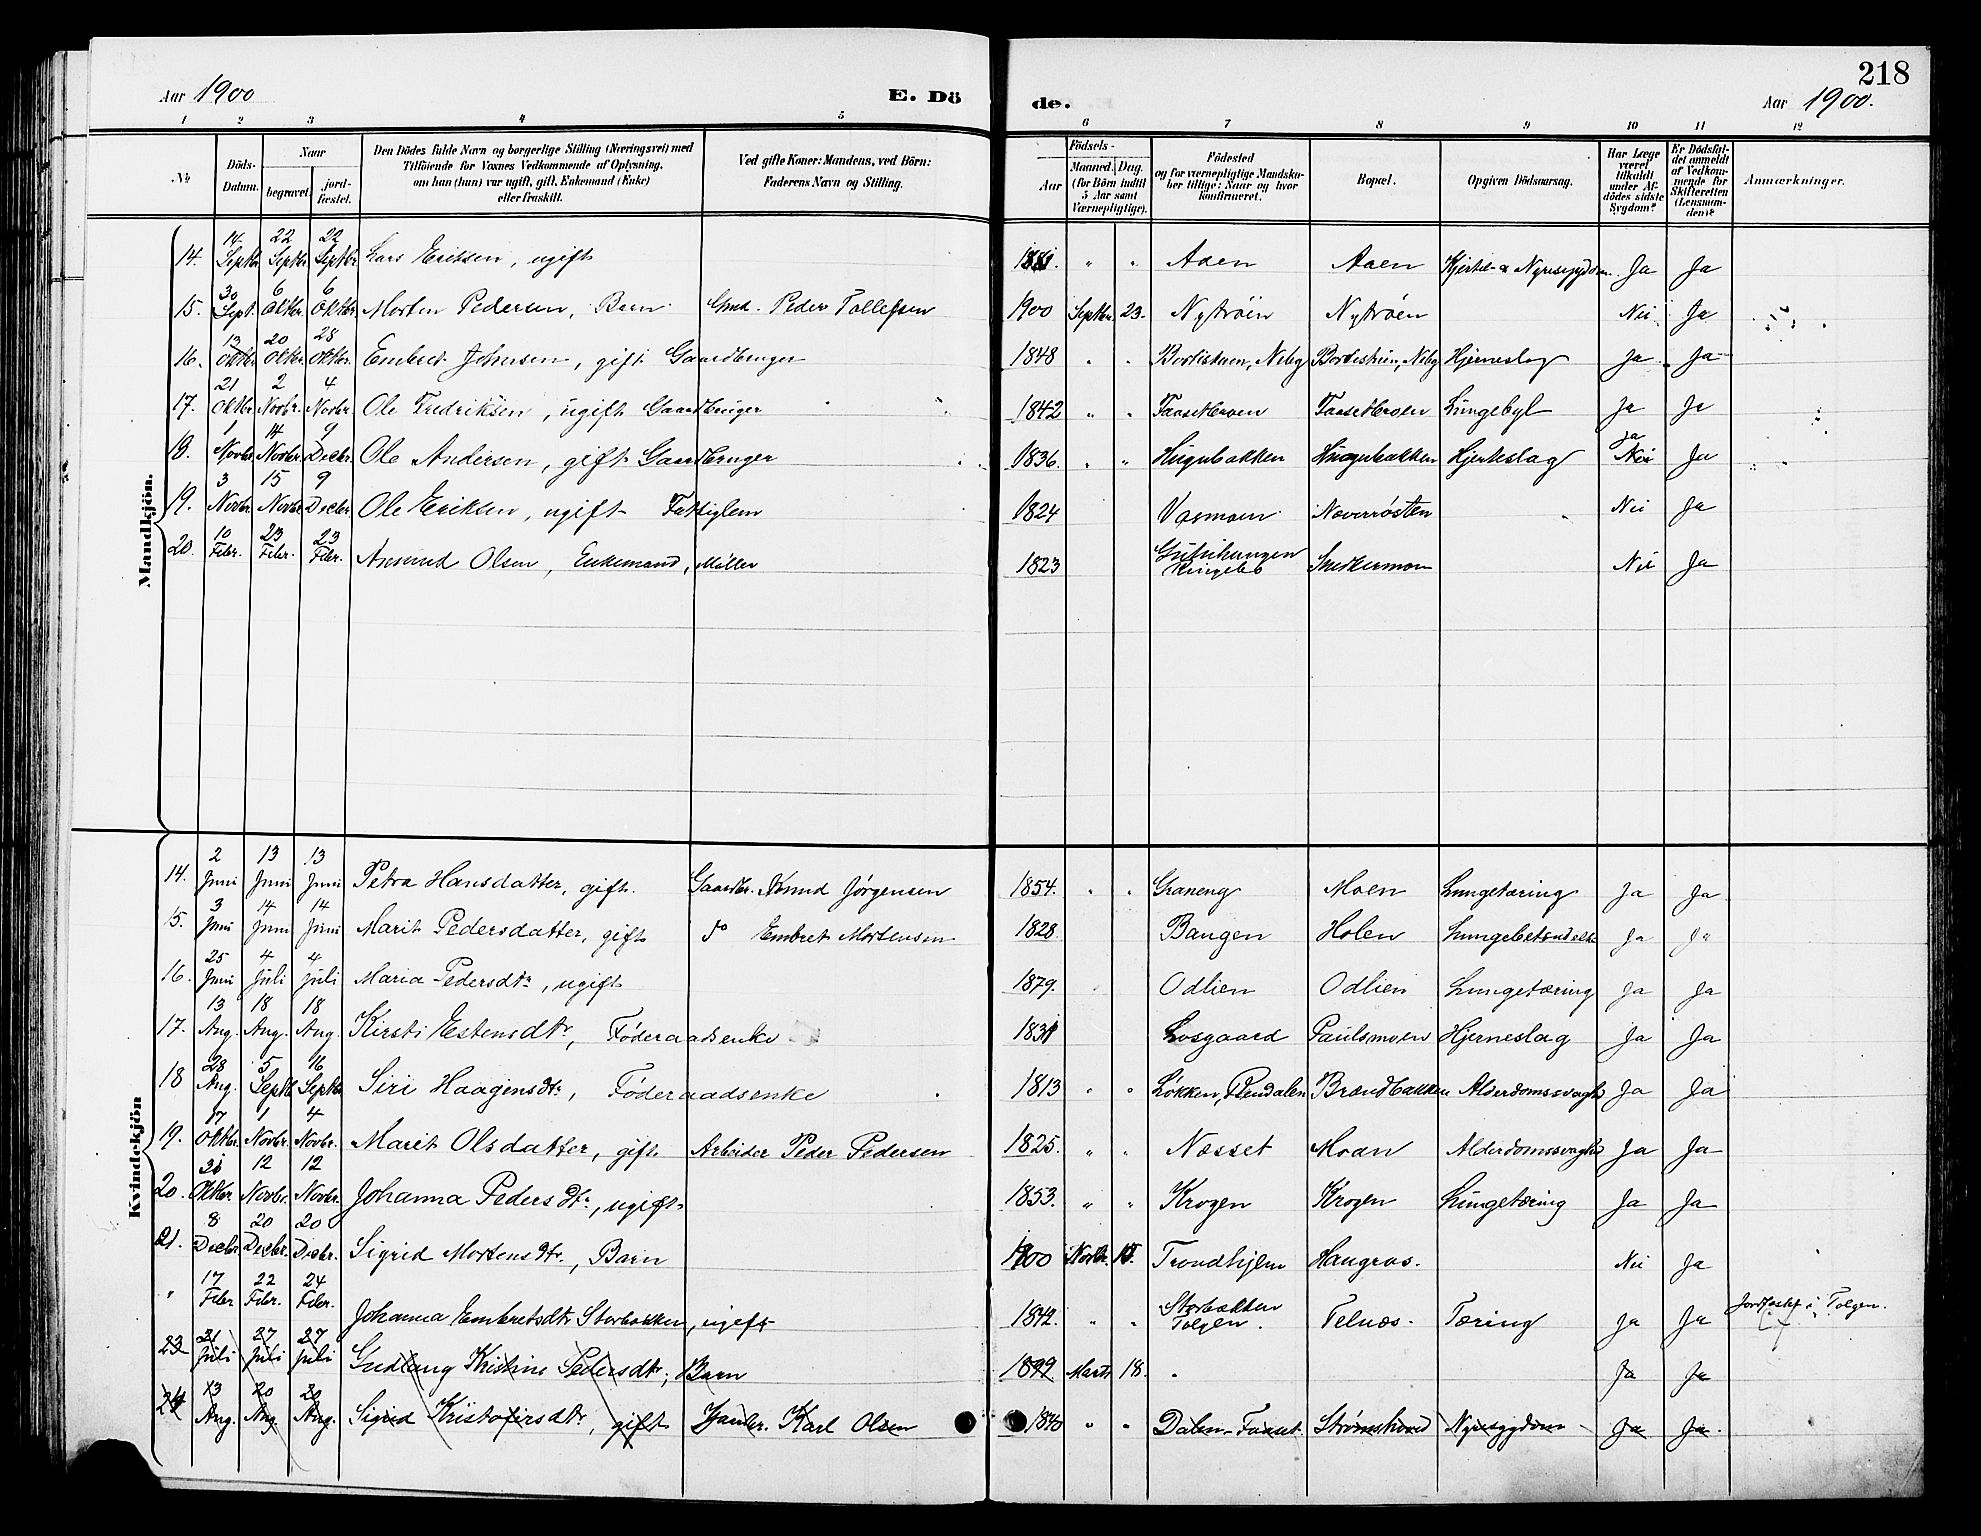 Aar 1900 E. Dö de. 218
Aar 1900.
1 2 3 4 5 6 7 8 9 10 11 12
No Döds-Datum. Naar begravet. jord-fæstet. Den Dödes fulde Navn og borgerlige Stilling (Næringsvei) med Tilföiende for Voxnes Vedkommende af Oplysning, om han (hun) var ugift, gift, Enkemand (Enke) eller fraskilt. Ved gifte Koner: Mandens, ved Börn: Faderens Navn og Stilling. Födsels- Aar Maaned. Dag. (for Börn indtil 5 Aar samt Værnepligtige). Födested og for værnepligtige Mandskaber tillige: Naar og hvor konfirmeret. Bopæl. Opgiven Dödsaarsag. Har Læge været tilkaldt under Afdödes sidste Sygdom? Er Dödsfaldet anmeldt af Vedkommende for Skifteretten (Lensmanden)? Anmærkninger.
Mandkjön.
14. 14 Septbr. 22 Septbr. 22 Septbr. Lars Eriksen, ugift 1881. " " Aaen Aaen Kjertel- & Nyresygdom Ja Ja
15. 30 Sept. 6 Oktbr. 6 Oktbr. Morten Pedersen, Barn Gmd. Peder Tollefsen 1900 Septbr. 23. Nytröen Nytröen Nei Ja
16. 13 Oktbr. 20 Oktbr. 28 Oktbr. Embret Johnsen, gift Gaardbruger 1848 " " Hjerneslag Ja Ja
17. 21 Oktbr. 2 Novbr. 4 Novbr. Ole Fredriksen, ugift Gaardbruger 1842 " " Faasetbroen Faasetbroen Lungebyl Ja Ja
18. 1 Novbr. 14 Novbr. 9 Decbr. Ole Andersen, gift Gaardbruger 1836 " " Hugubakken Hugubakken Hjerteslag Ja Nei Ja
19. 3 Novbr. 15 Novbr. 9 Decbr. Ole Eriksen, ugift Fattiglem 1824 Vaermoen Næverrösten Nei Ja
20. 10 Febr. 23 Febr. 23 Febr. Amund Olsen, Enkemand, Møller 1823 Ringebo Snedkermoen Nei Ja
Kvindekjön
14. 2 Juni 13 Juni 13 Juni Petra Hansdatter, gift. Gaardbr. Amund Jørgensen 1854. " " Graneng Moen Lungetæring Ja Ja
15. 3 Juni 14 Juni 14 Juni Marit Pedersdatter, gift do Embret Mortensen 1828 Bangen Holen Lungebetændelse Ja Ja
16. 25 Juni 4 Juli 4 Juli Maria Pedersdtr, ugift 1879. Odlien Odlien Lungetæring Ja Ja
17. 13 Aug. 18 Aug. 18 Aug. Kirsti Estensdtr, Føderaadsenke 1831 Losgaard Paulsmoen Hjerneslag Ja Ja
18 28 Aug. 5 Septbr 16 Septbr Siri Haagensdtr, Føderaadsenke 1813 " " Løkken, Rendalen Brændbakken Alderdomssvaghd Ja Ja
19. 17 Oktbr. 1 Novbr. 4 Novbr. Marit Olsdatter, gift Arbeider Peder Pedersen 1825. " " Næsset Moan Alderdomssvaghd Ja Ja
20. 31 Oktbr 12 Novbr. 12 Novbr. Johanna Pedersdtr, ugift 1853. " " Krogen Krogen Lungetæring Ja Ja
21. 8 Decbr. 20 Decbr. 20 Decbr. Sigrid Mortensdtr, Barn 1900 Novbr. 15. Trondhjem Haugros. Nei Ja
" 17 Febr 22 Febr. 24 Febr. Johanna Embretsdtr Storbakken, ugift 1842. " " Storbakken Tolgen. Telnæs. Tæring Ja Ja Jordfæstet i Tolgen.
23 21 Juli 27 Juli 27 Juli Gudlaug Kristine Pedersdtr, Barn 1899 Marts 18. Ja Ja
24 13 Aug. 20 Aug. 20 Aug. Sigrid Kristofersdtr, gift Gaardbr. Karl Olsen 1840 " " Dalen-Faaset. Strømshoved Nyresygdom Ja Ja.